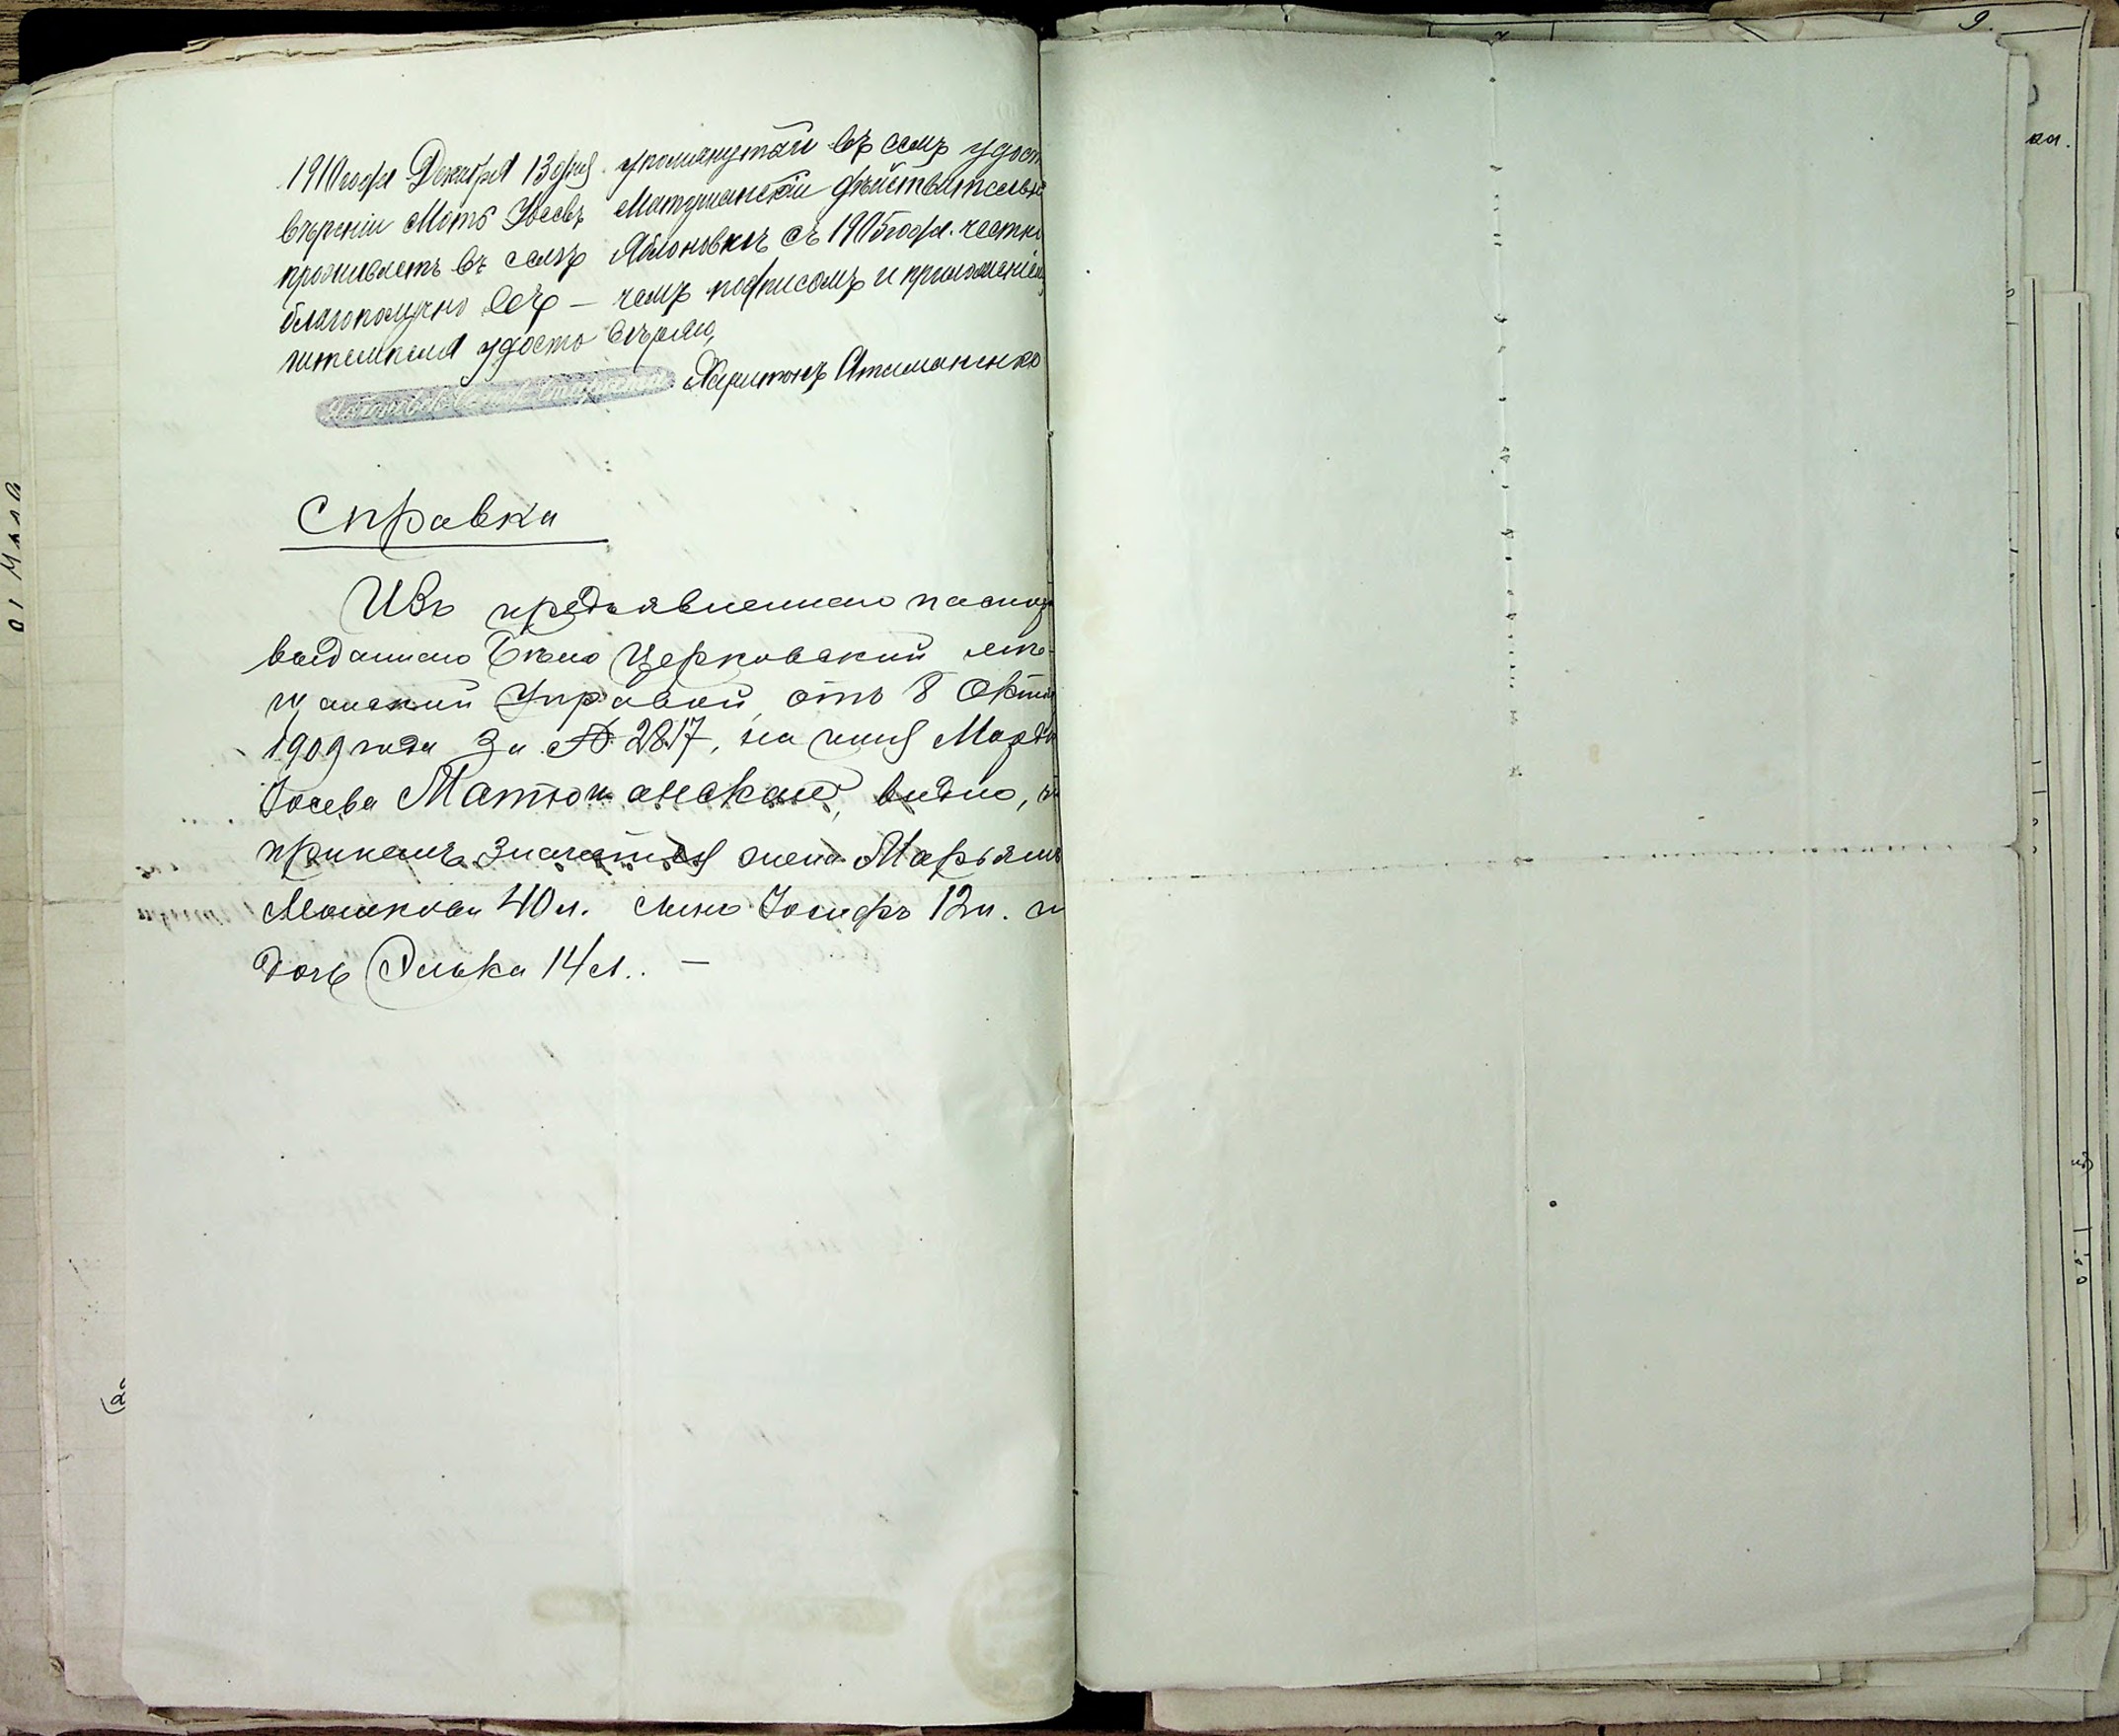 1910 года Декабря 13 дня. упомянутай въ семъ удост
вѣрении Мотъ Иосевъ Матушанскій дѣйствительн
проживаетъ въ селѣ Яблоновкѣ съ 1905 года. честно
благополучно — чемъ подписомъ и приложеніем
удосто вѣряю,
Харитонъ Атаманенко
Справка
Изъ предъявленнаго паспор
выданнаго Бѣло Церковской мѣ-
щанской Управой, отъ 8 Октя
1909 года за № 2817, на имя Мордк
Иосева Матюшанскаго, видно, ч
при немъ значатся жена Марьям
Мошкова 40 л. сынъ Иосифъ 12 л. и
дочь Элька 14 л.. —